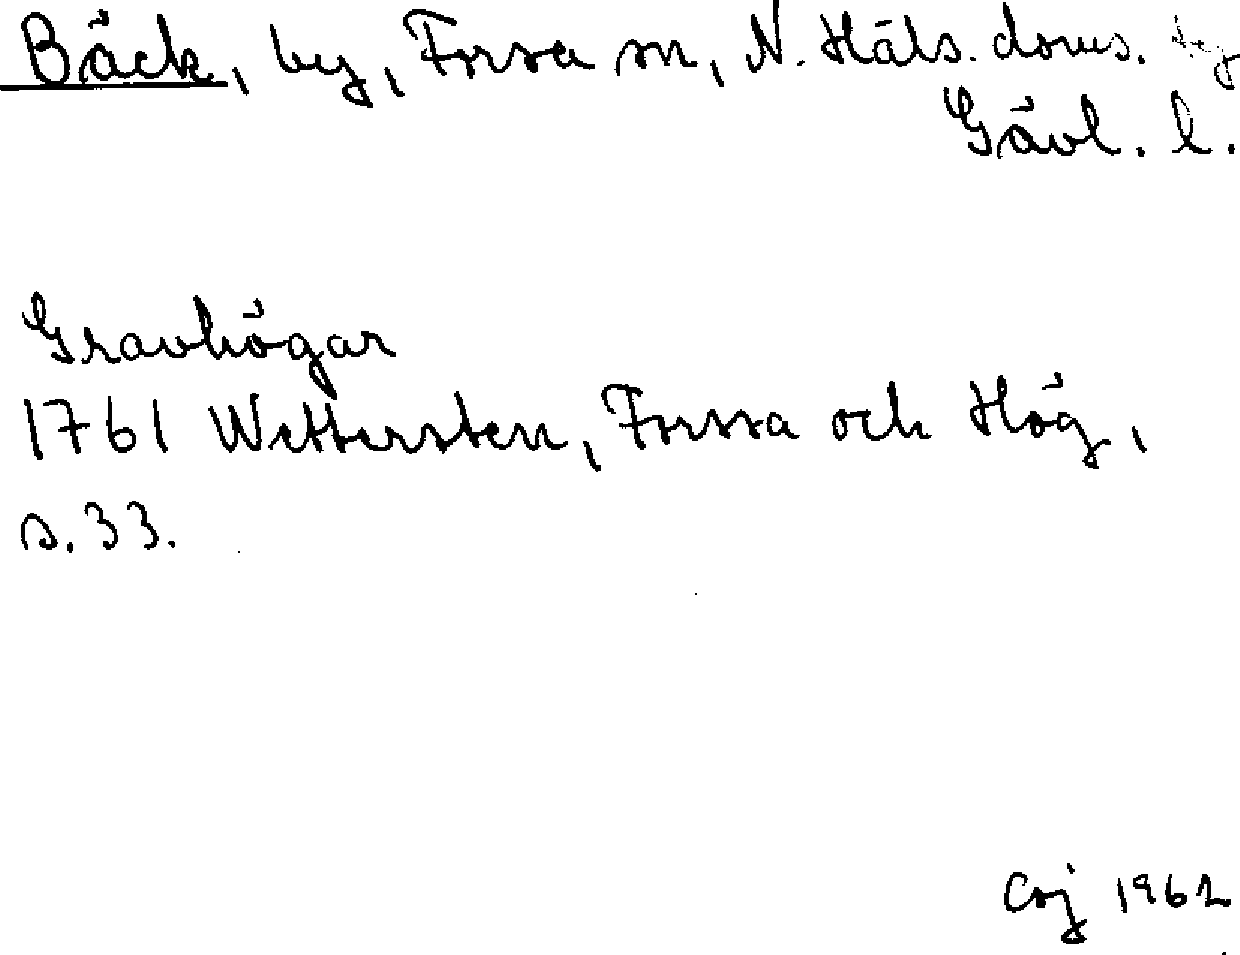 Bäck, by, Forsa sn, N. Häls. doms.
Gävl. l.
Gravhögar
1761 Wettersten, Forssa och Hög,
s. 33.
1962